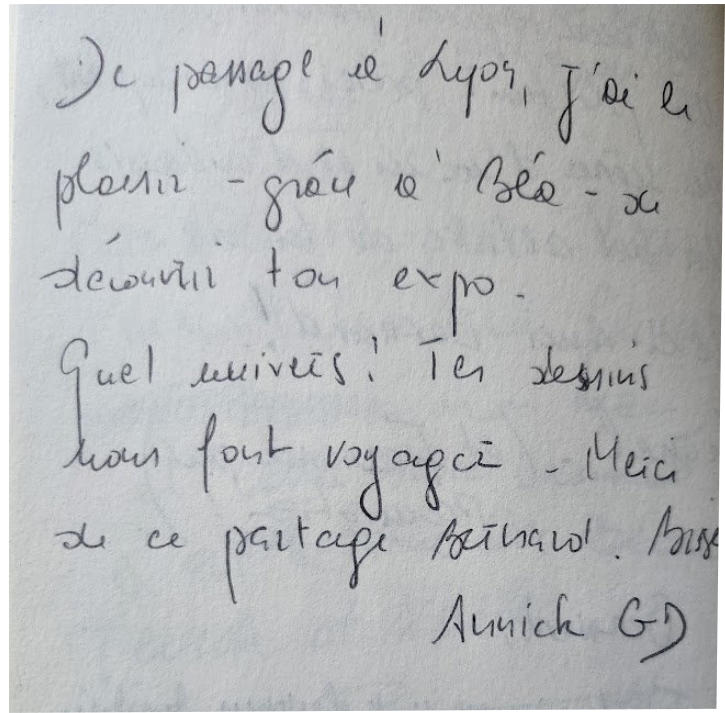 De passage à Lyon, j'ai eu
plaisir - grâce à Béa - de
découvrir ton expo.
Quel univers! Tes dessins
nous font voyager - Merci
de ce partage Bernard. Bise
Annick GD